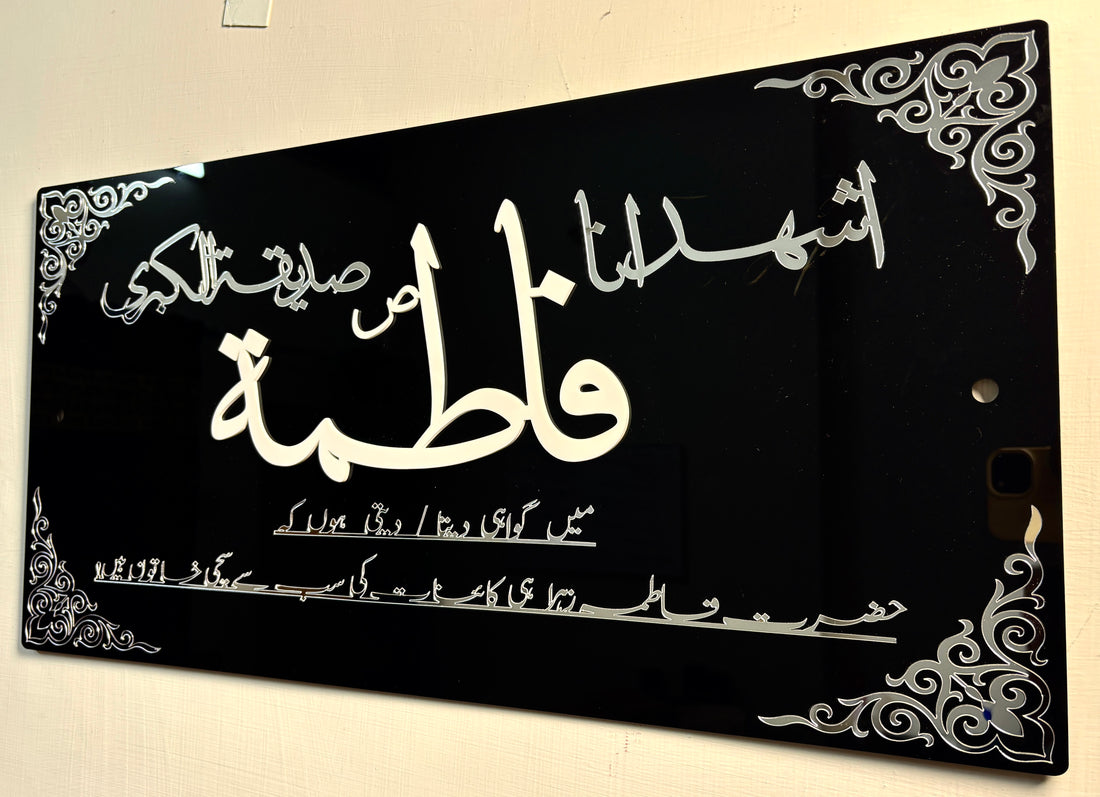 اشهد ان فاطمة ص صدیقة الکبری
میں گواہی دیتا / دیتی ہوں کہ
حضرت فاطمہ زہرا ہی کائنات کی سب سے سچی خاتون ہیں